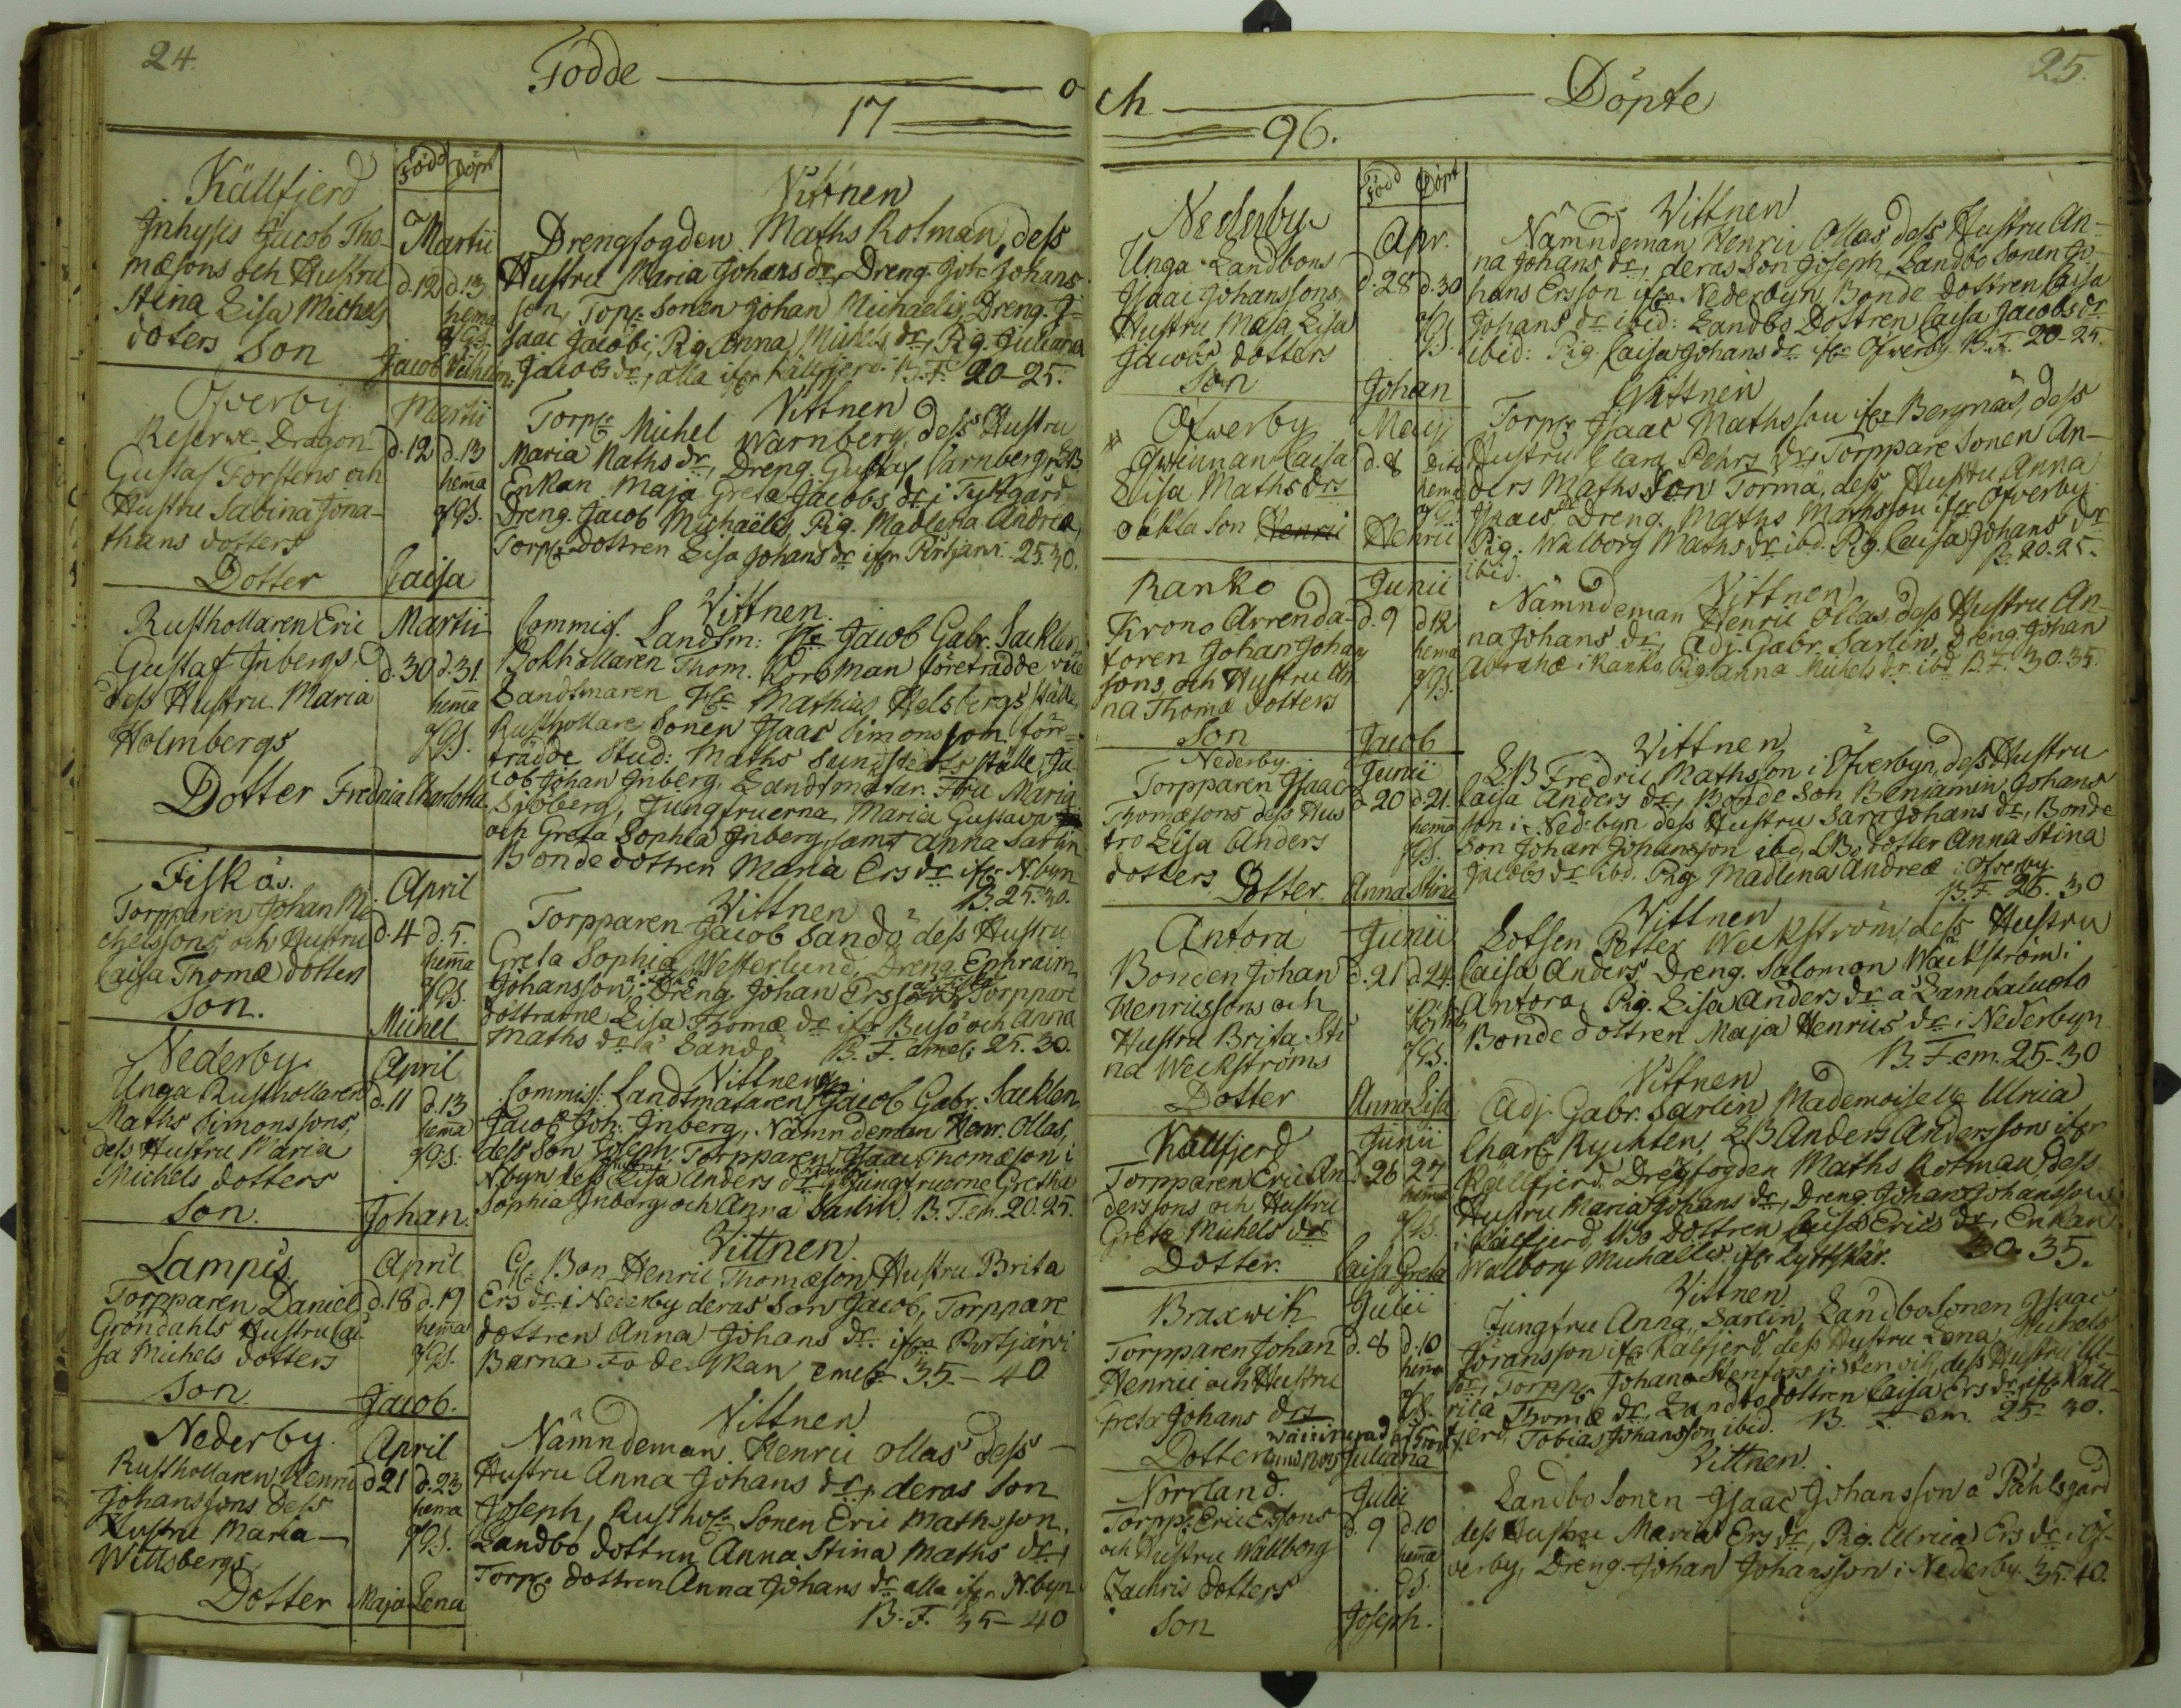 24.
Födde — o
17
Född Döpt
Källfjerd
Inhysis Jacob Tho-
mæsons och Hustru
Stina Lisa Michels
doters Son
Martii
d. 12 d. 13
hema
Jacob Vilhelm
Vittnen
Drengfogden Maths Rotman, dess
Hustru Maria Johans dr, Dreng. Joh. Johans
son, Torp. Sonen Johan Michaelis, Dreng. I-
saac Jacobi, Pig. Anna Michels dr, Pig. Juliana
Jacobs dr, alla ifrn Källfjerd. B. F. 20-25.
Öfverby
Reserve-Dragon
Gustaf Forstens och
Hustru Sabina Jona-
thans dotters
Dotter
Martii
d. 12 d. 13
hema
Caisa
Vittnen
Torp. Michel Warnberg, dess Hustru
Maria Maths dr, Dreng. Gustaf Varnberg, LB
Enkan Maja Greta Jacobs dr i Tyskgård
Dreng. Jacob Michaëlis, Pig. Madlena Andreæ,
Torp. dottren Lisa Johans dr ifrn Pörtjärvi. 25.30.
Rusthollaren Eric
Gustaf Inbergs,
dess Hustru Maria
Holmbergs
Dotter
Martii
d. 30 d. 31.
hema
Fredrica Charlotta
Vittnen.
Commiss. Landtm: Hr Jacob Gabr. Sacklen,
Bokhållaren Thom. Korsman företrädde vice
Landtmaren Hr Mathias Helsbergs ställe,
Rusthollare Sonen Isaac Simonsson före-
trädde Stud: Maths Sundstedts ställe, Ja-
cob Johan Inberg, Landtmätar. Fru Maria
Sjöberg, Jungfruerna Maria Gustava
och Greta Sophia Inberg, samt Anna Sarlin
Bondedottren Maria Ers dr ifrn N.byn
B. 25. 30.
Fiskäs.
Torpparen Johan Mi-
chelssons, och Hustru
Caisa Thomæ dotters
Son.
April
d. 4 d. 5.
hema
Michel
Vittnen
Torpparen Jacob Sandö, dess Hustru
Greta Sophia Westerlund, Dreng Ephraim
Johansson, Dreng Johan Ersson, Torppare
dottrarne Lisa Thomæ dr ifrn Busö och Anna
Maths dr å Sandö B. F. emel: 25. 30.
Nederby
Unga Rusthollaren
Maths Simonssons,
dess Hustru Maria
Michels dotters
Son.
April
d. 11 d. 13
hema
Johan.
Vittnen
Commiss: Landtmätaren Jacob Gabr. Sacklen,
Jacob Joh: Inberg, Nämndeman Henr. Ollas,
dess Son Joseph, Torpparen Isaac Thomæson i
N.byn, dess Lisa Anders dr, Jungfruerne Gretha
Sophia Inberg och Anna Sarlin. B. F. em. 20. 25.
Lampis
Torpparen Daniel
Gröndahls Hustru Cai-
sa Michels dotters
Son
April
d. 18 d. 19
hema
Jacob.
Vittnen.
Bon Henric Thomæson, Hustru Brita
Ers dr i Nederby deras Son Jacob, Torppare
dottren Anna Johans dr ifrn Pörtjärvi
Barna Föderskan emel: 35 - 40
Nederby.
Rusthollaren Henric
Johanssons dess
Hustru Maria
Wittsbergs
Dotter
April
d 21 d. 23
hema
Maja Lena
Vittnen
Nämndeman Henric Ollas, dess
Hustru Anna Johans dr, deras Son
Joseph, Rusthol. Sonen Eric Mathsson,
Landbo dottren Anna Stina Maths dr,
Torp. dottren Anna Johans dr alla ifrn N.byn
B. F. 35 - 40
25.
ch — Döpte
96.
Född Döpt
Nederby
Unga Landbons
Isaac Johanssons
Hustru Maja Lisa
Jacobs dotters
Son
Apr.
d. 28 d. 30
Johan
Vittnen
Nämndeman Henric Ollas, dess Hustru An-
na Johans dr, deras Son Joseph, Landbo Sonen Jo-
hans Ersson ifrn Nederbyn, Bonde dottren Caisa
Johans dr ibid: Landbo Dottren Caisa Jacobs dr
ibid: Pig. Caisa Johans dr ifrn Öfverby. B. F. 20-25.
Öfwerby
Qwinnan Caisa
Lisa Maths drs
oäkta Son Henric
Maij
d. 8 dito
hema
Henric
Vittnen
Torp. Isaac Mathsson ifrn Bergnäs, dess
Hustru Clara Pehrs dr, Torppare Sonen An-
ders Mathsson Torma, dess Hustru Anna
Isaacs dr, Dreng. Maths Mathsson ifrn Öfverby
Pig. Walborg Maths dr ibd. Pig. Caisa Johans dr
ibid. B. 20. 25.
Ranko
Krono Arrenda-
toren Johan Johan
sons, och Hustru An-
na Thomæ dotters
Son
Junii
d. 9 d 12
hema
Jacob
Vittnen
Nämndeman Henric Ollas, dess Hustru An-
na Johans dr, Adj. Gabr. Sarlin, Dreng. Johan
Abrahæ i Ranko, Pig. Anna Michels dr ibd B. F. 30. 35.
Nederby.
Torpparen Isaac
Thomæsons dess Hus
tro Lisa Anders
dotters Dotter
Junii
d 20 d. 21.
hema
Anna Stina
Vittnen
LB Fredric Mathsson i Öfverbyn, dess Hustru
Caisa Anders dr, Bonde Son Benjamin Johans
son i Ned:byn dess Hustru Sara Johans dr, Bonde
Son Johan Johansson ibd, LBo dotter Anna Stina
Jacobs dr ibd. Pig Madlena Andreæ i Öfverby.
B. F 25. 30
Antora
Bonden Johan
Henricssons och
Hustru Brita Sti-
na Weckströms
Dotter
Junii
d. 21 d. 24.
Anna Lisa
Vittnen
Lotsen Petter Weckström, dess Hustru
Caisa Anders Dreng. Salomon Wäckström i
Antora, Pig. Lisa Anders dr å Lambaluoto
Bonde dottren Maja Henrics dr i Nederbyn
B. F. em. 25-30
Källfjerd
Torpparen Eric An
derssons och Hustru
Greta Michels drs
Dotter.
Junii
d 26 27
hema
Caisa Greta
Vittnen
Adj. Gabr. Sarlin, Mademoiselle Ulrica
Charl. Rychten, LB Anders Andersson ifrn
Källfjerd. Drengfogden Maths Rotman, dess
Hustru Maria Johans dr, Dreng Johan Johansson
i Källfjerd, LBo dottren Caisa Erics dr, Enkan
Walborg Michaëlis ifrn Lyttskär. 30. 35.
Braxwik
Torpparen Johan
Henric och Hustru
Greta Johans drs
Dotter
Julii
d. 8 d. 10
hema
Juliana
Vittnen
Jungfru Anna Sarlin, Landbo Sonen Isaac
Jöransson ifrn Källfjerd, dess Hustru Lena Michels
dr, Torpp. Johan Stenfors i Stenvik, dess Hustru Ul-
rica Thomæ dr, Landbo dottren Caisa Ers dr ifrn Käll-
fjerd, Tobias Johansson ibid. B. F em. 25 30.
Norrland.
Torpp. Eric Erssons
och Hustru Wallborg
Zachris dotters
Son
Julii
d. 9 d. 10
hema
Joseph.
Vittnen.
Landbo Sonen Isaac Johansson å Påhlsgård
dess Hustru Maria Ers dr, Pig. Ulrica Ers dr i Öf-
verby, Dreng. Johan Johansson i Nederby. 35. 40.